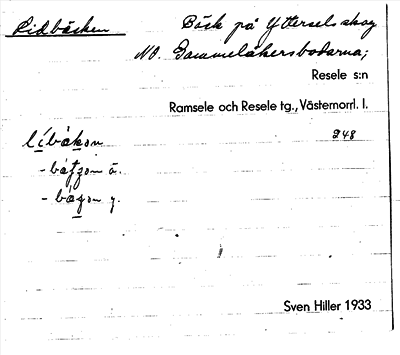 Lidbäcken Bäck på Ytterselsskog
NO. Gammelåkersbodarna;
Resele s:n
Ramsele och Resele tg., Västernorrl. l.
248
líbäkən
- bäʃʒən ä.
- bägən y.
Sven Hiller 1933